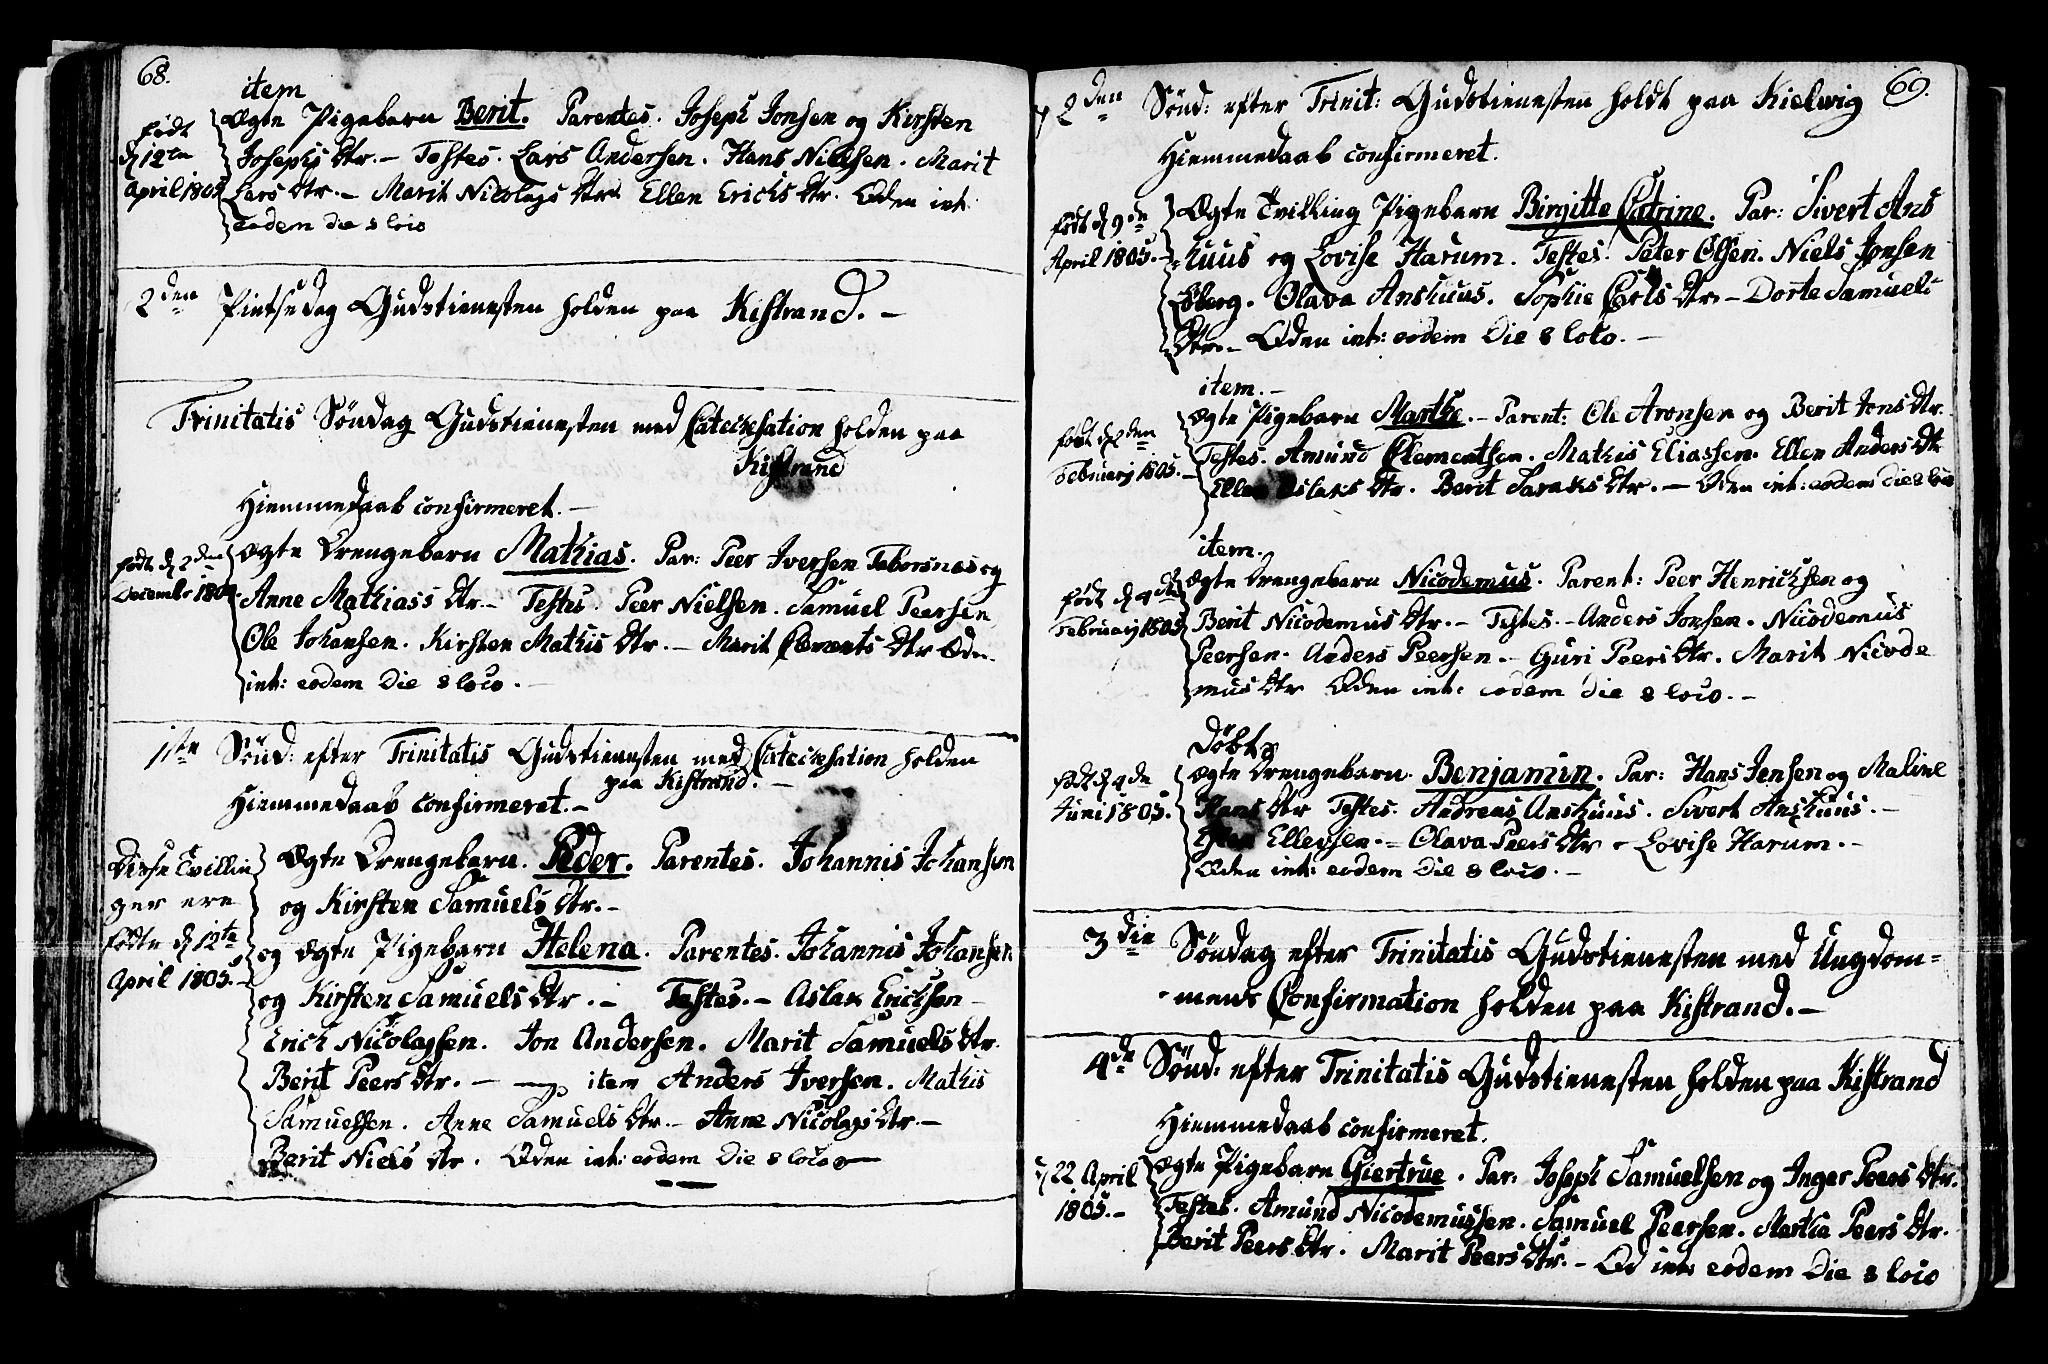 68.
item
Født
d 12te
April 1805
Ægte Pigebarn Berit. Parentes. Joseph Jonsen og Kirsten
Josephs Dtr. – Testes. Lars Andersen. Hans Nielsen. Marit
Lars Dtr. – Marit Nicolays Dtr. Ellen Erichs Dtr. Eden int:
eodem die & loco
2den Pintsedag Gudstienesten holden paa Kistrand. –
Trinitatis Søndag Gudstienesten med Catechisation holden paa
Kistrand
Hiemmedaab confirmeret. –
født d 2den
Decembr 1804.
Ægte Drengebarn Mathias. Par: Peer Iversen Taborsnes og
Anne Mathiass Dtr. – Testes. Peer Nielsen. Samuel Peersen
Ole Johansen. Kirsten Mathis Dtr. – Marit Clements Dtr Eden
int: eodem die & loco. –
1ste Sönd: efter Trinitatis Gudstienesten med Catechisation holden
paa Kistrand. –
Hiemmedaab confirmeret. –
Disse Tvillin
ger ere
fødte d 12te
April 1805. –
Ægte Drengebarn. Peder. Parentes. Johannis Johansen
og Kirsten Samuels Dtr. –
og Ægte Pigebarn Helena. Parentes. Johannis Johansen
og Kirsten Samuels Dtr. – Testes. – Aslak Erichsen –
Erich Nicolaysen. Jon Andersen. Marit Samuels Dtr.
Berit Peers Dtr. – item Anders Iversen. Mathis
Samuelsen. Anne Samuels Dtr. – Anne Nicolays Dtr. –
Berit Niels Dtr. Eden int: eodem die & loco –
69.
2den Sönd: efter Trinit: Gudstienesten holdt paa Kielwig
Hiemmedaab confirmeret.
født d 9de
April 1805. –
Ægte Tvilling Pigebarn Birgitte Catrine. Par: Sivert Ans
huus og Lovise Harum. Testes. Peter Olsen. Niels Jonsen
Esberg. Olava Anshuus. Sophie Carls Dtr. – Dorte Samuels
Dtr. – Eden int: eodem die & loco. –
item. –
født d 2den
February 1805. –
Ægte Pigebarn Marthe. – Parent: Ole Aronsen og Berit Jons Dtr.
Testes. Amund Clementsen. Mathis Eliassen. Ellen Anders Dtr
Ellen Aslaks Dtr. Berit Saraks Dtr. – Eden int: eodem die & loco
item.
født d 4de
February 1805
Ægte Drengebarn Nicodemus. Parent: Peer Henrichsen og
Berit Nicodemus Dtr. – Testes. – Anders Jonsen. Nicodemus
Peersen. Anders Peersen. – Guri Peers Dtr. Marit Nicode
mus Dtr Eden int: eodem die & loco. –
Döbt
født d 4de
Juni 1805.
Ægte Drengebarn. Benjamin. Par: Hans Jensen og Maline
Hans Dtr Testes. Andreas Anshuus. Sivert Anshuus. –
Ellevsen. – Olava Peers Dtr – Lovise Harum. –
Eden int: eodem die & loco. –
3die Söndag efter Trinitatis Gudstienesten med Ungdom=
mens Confirmation holden paa Kistrand. –
4de Sönd: efter Trinitatis Gudstienesten holden paa Kistrand
Hiemmedaab confirmeret.
d 22 April
1805. –
Ægte Pigebarn Giertrue. Par: Joseph Samuelsen og Inger Peers Dtr.
Testes. Amund Nicodemussen. Samuel Peersen. Martha Peers Dtr.
Berit Peers Dtr. Marit Peers Dtr. – Ed int: eodem die & loco